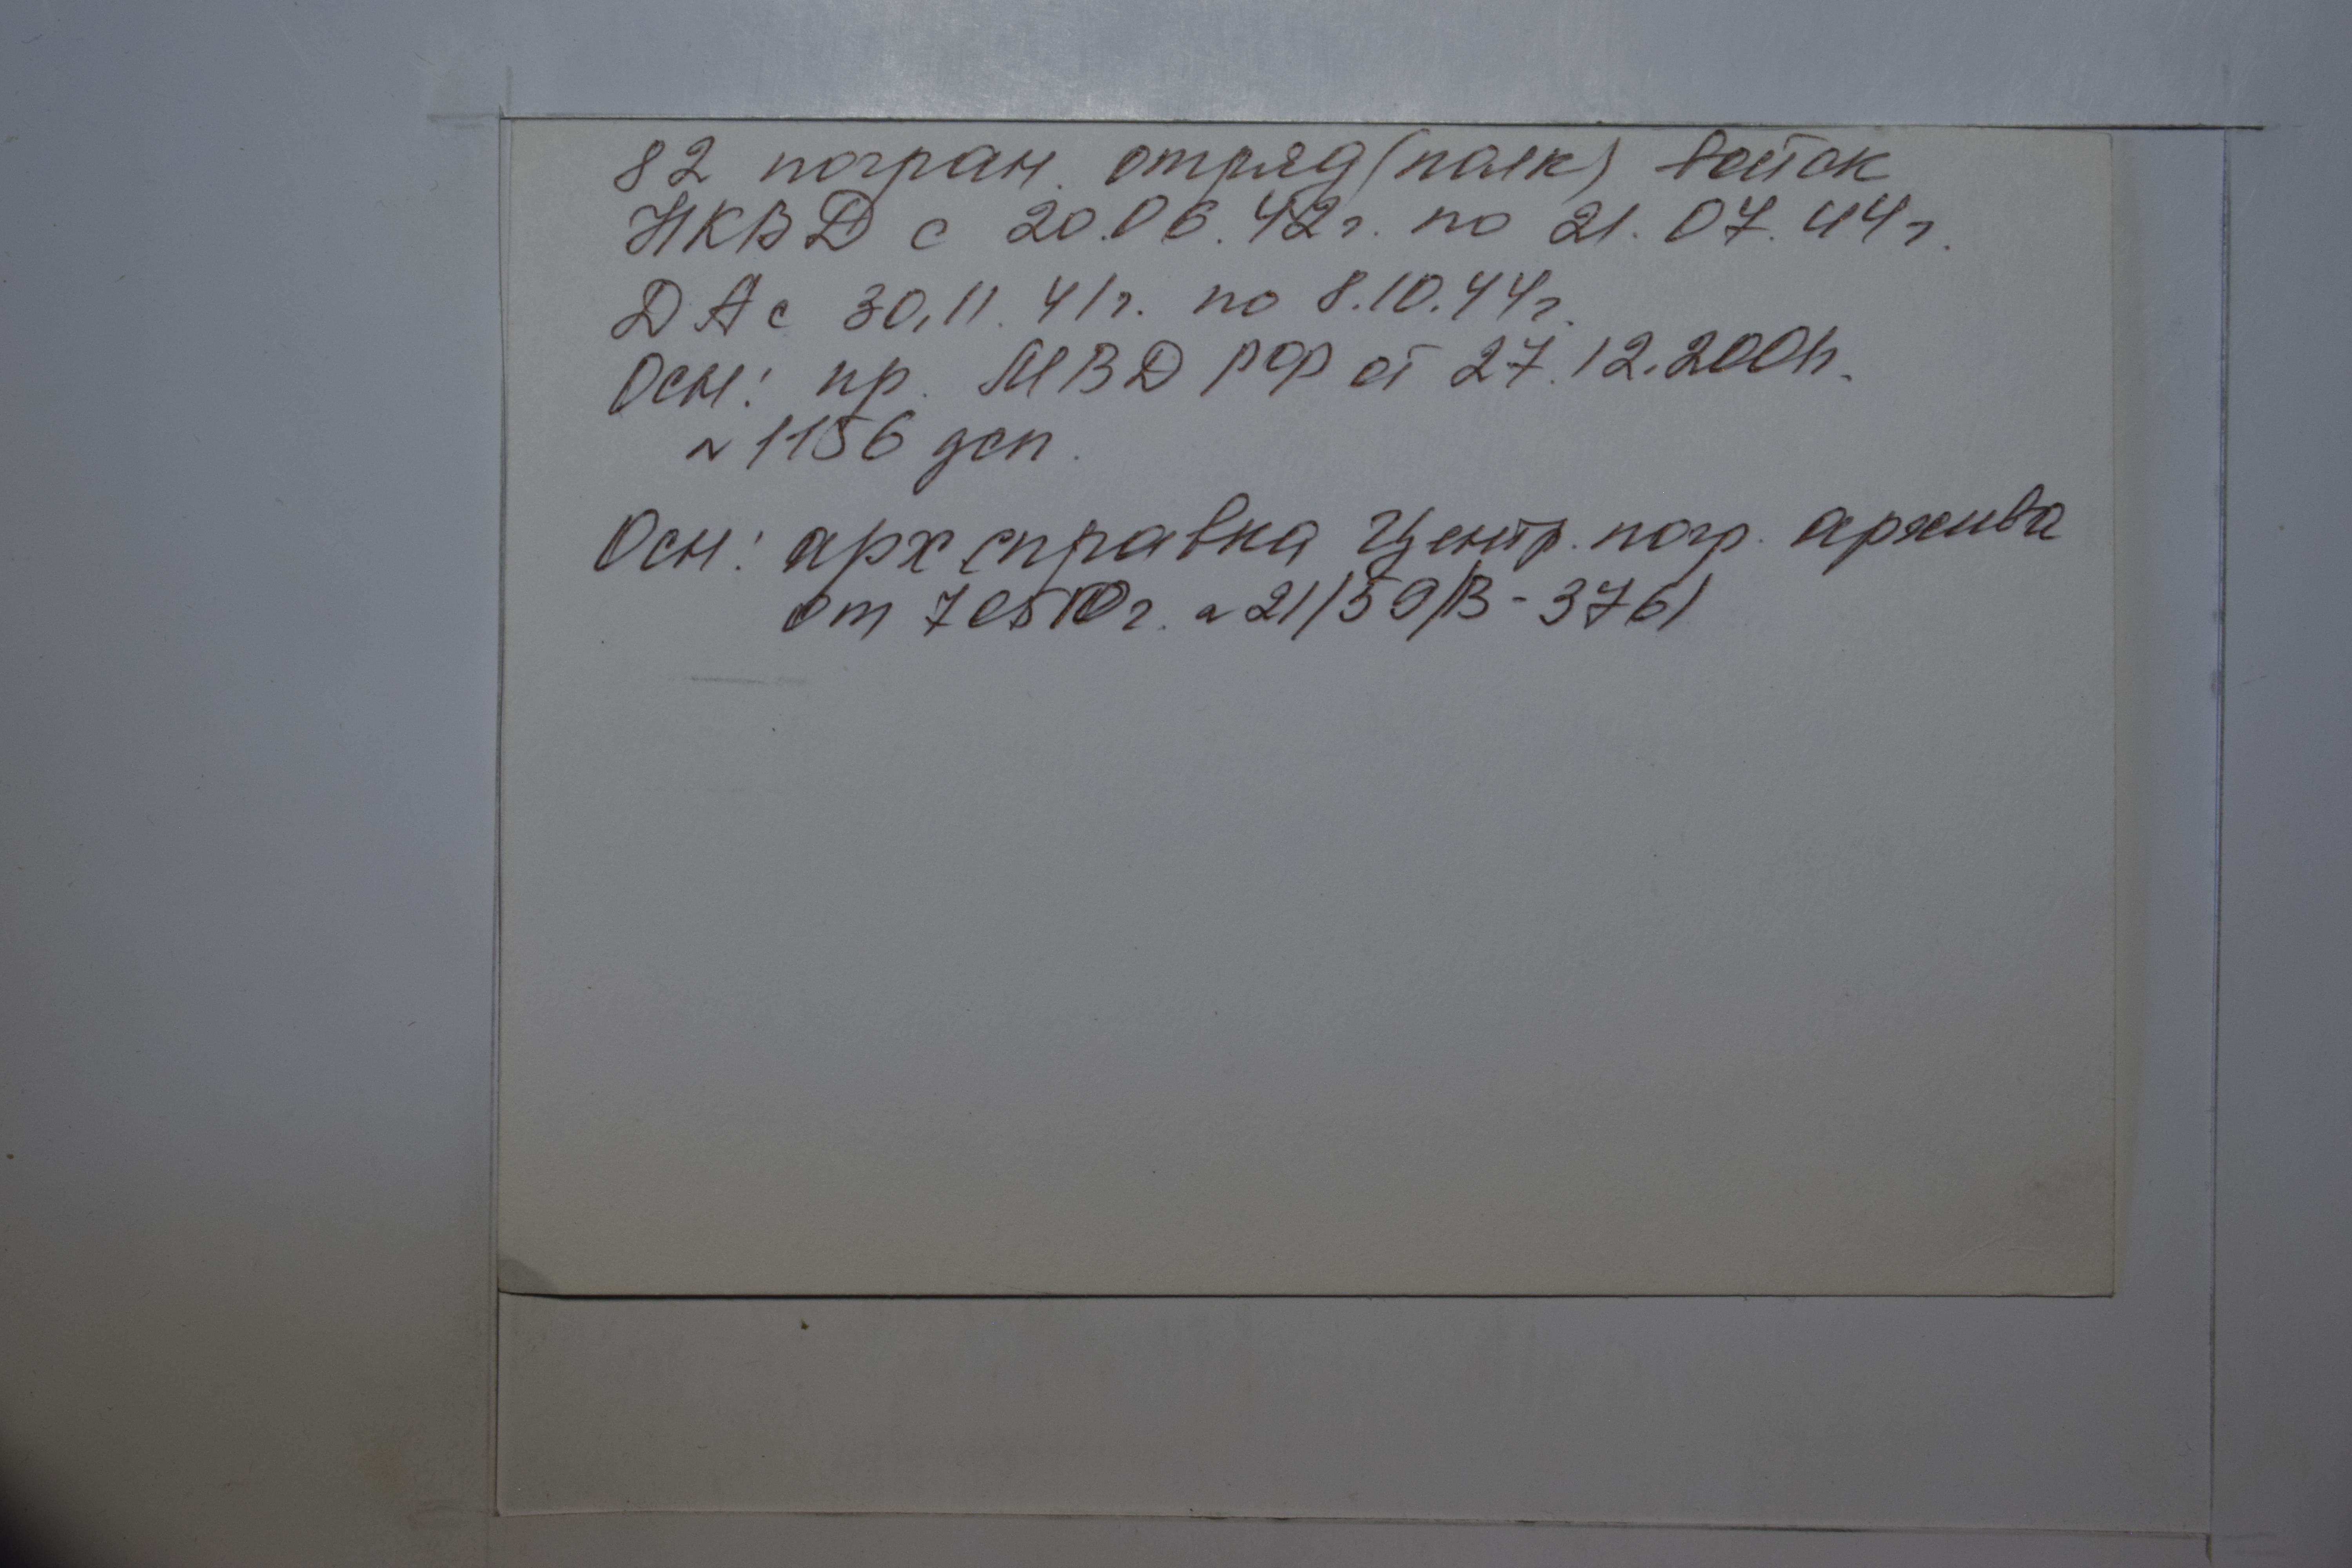 82 погран. отряд (полк) войск
НКВД с 20.06.42г. по 21.07.44г.
ДА с 30.11.41г. по 8.10.44г.
Осн: пр. МВД РФ от 27.12.2001г.
№ 1156 дсп.
Осн: арх. справка Центр. погр. архива
от г. № 21/59/В-3761